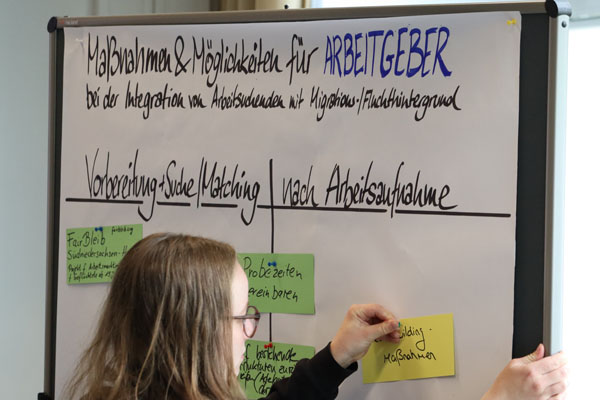 Maßnahmen & Möglichkeiten für ARBEITGEBER
bei der Integration von Arbeitsuchenden mit Migrations-/Fluchthintergrund
Vorbereitung+Suche/Matching
nach Arbeitsaufnahme
FairBleib
Südniedersachsen-H
Probezeiten
vereinbaren
bestehende
Building-
Maßnahmen